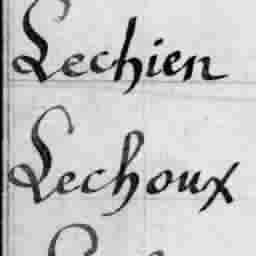 Lechien
Lechoux